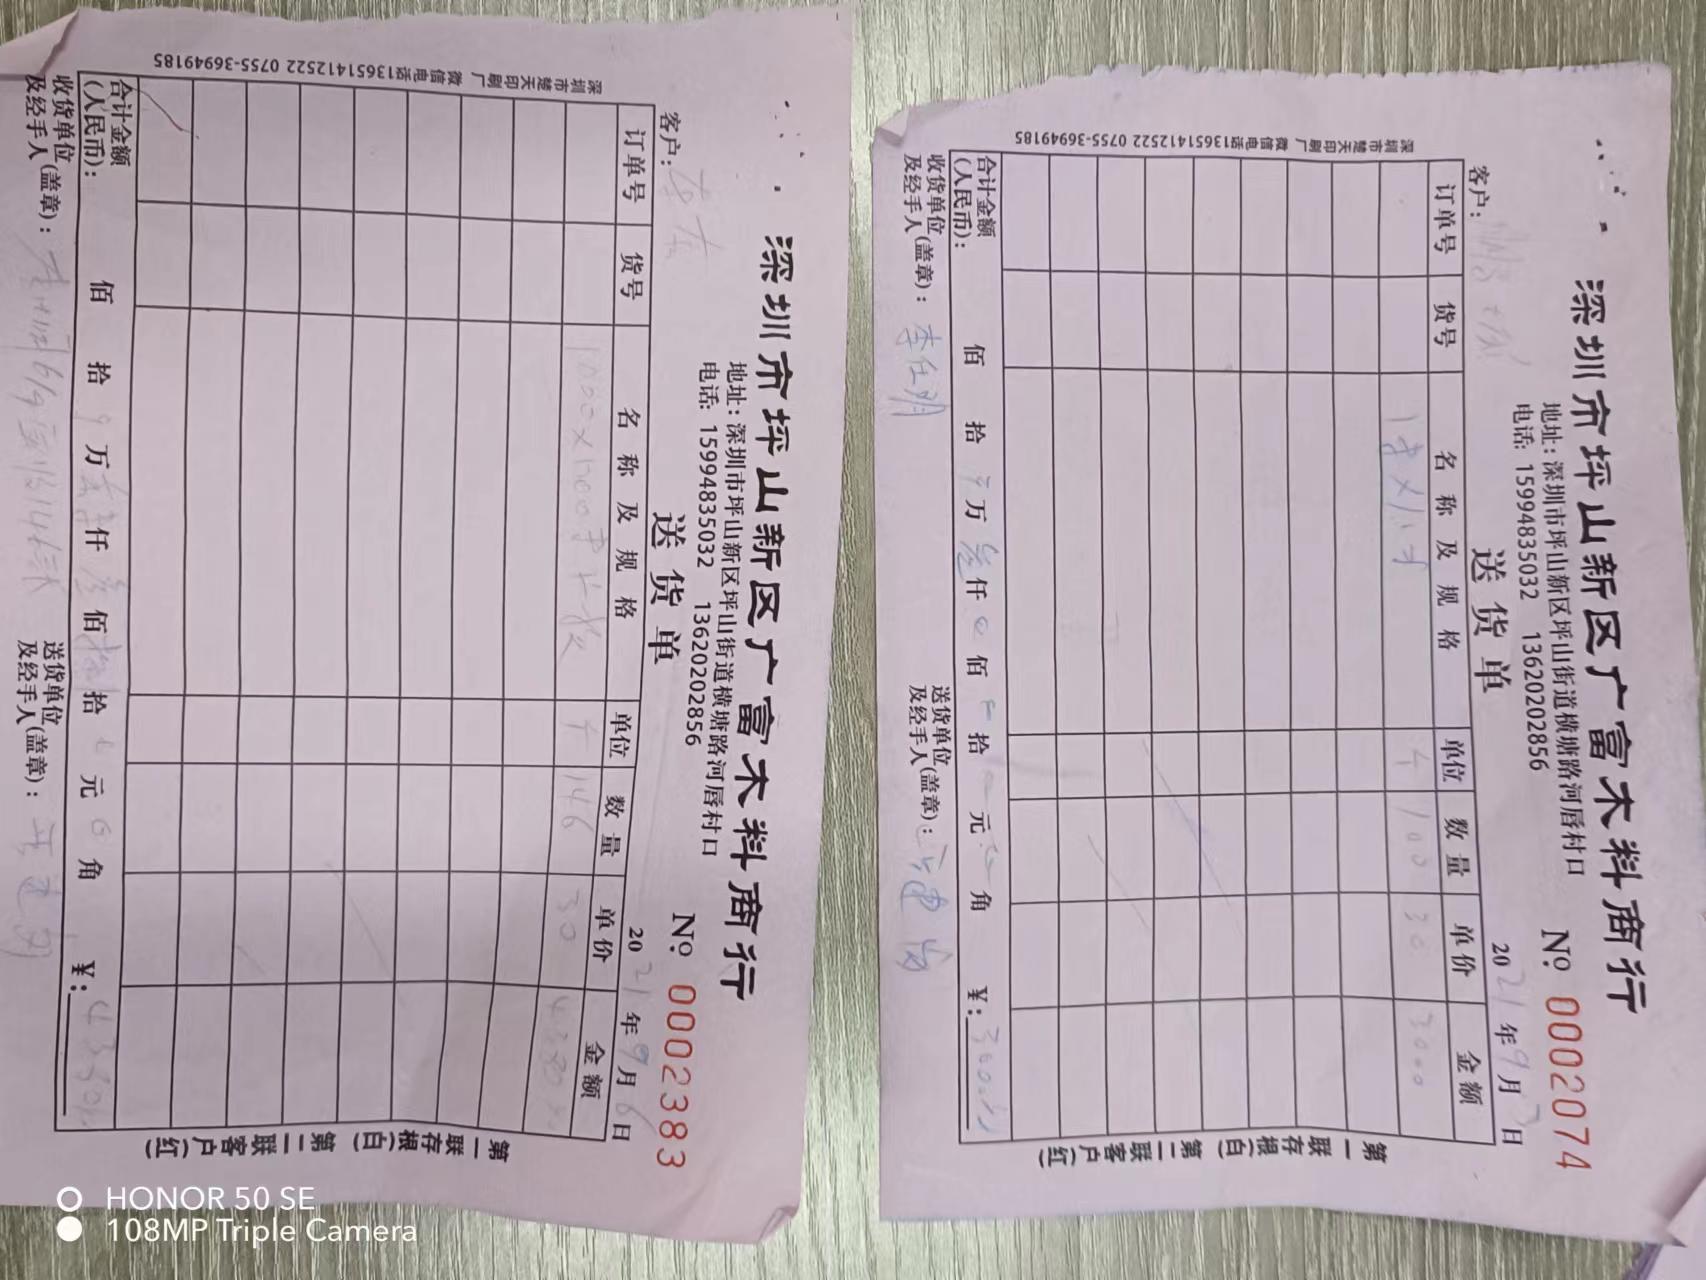 深圳市坪山新区广富木料商行
地址：深圳市坪山新区坪山街道横塘路河唇村口
电话：15994835032 13620202856
送货单
№ 0002383
客户：
2021年9月6日
订单号 货号 名称及规格 单位 数量 单价 金额
146 30 4380
合计金额(人民币)： 佰 拾 万 仟 佰 拾 元 角 ¥：4380
收货单位及经手人(盖章)：
送货单位及经手人(盖章)：
第一联存根(白) 第二联客户(红)
深圳市楚天印刷厂 微信电话13651412522 0755-36949185
深圳市坪山新区广富木料商行
地址：深圳市坪山新区坪山街道横塘路河唇村口
电话：15994835032 13620202856
送货单
№ 0002074
客户：
2021年9月3日
订单号 货号 名称及规格 单位 数量 单价 金额
100 30 3000
合计金额(人民币)： 佰 拾 万 仟 佰 拾 元 角 ¥：3000
收货单位及经手人(盖章)：李任明
送货单位及经手人(盖章)：
第一联存根(白) 第二联客户(红)
深圳市楚天印刷厂 微信电话13651412522 0755-36949185
HONOR 50 SE
108MP Triple Camera